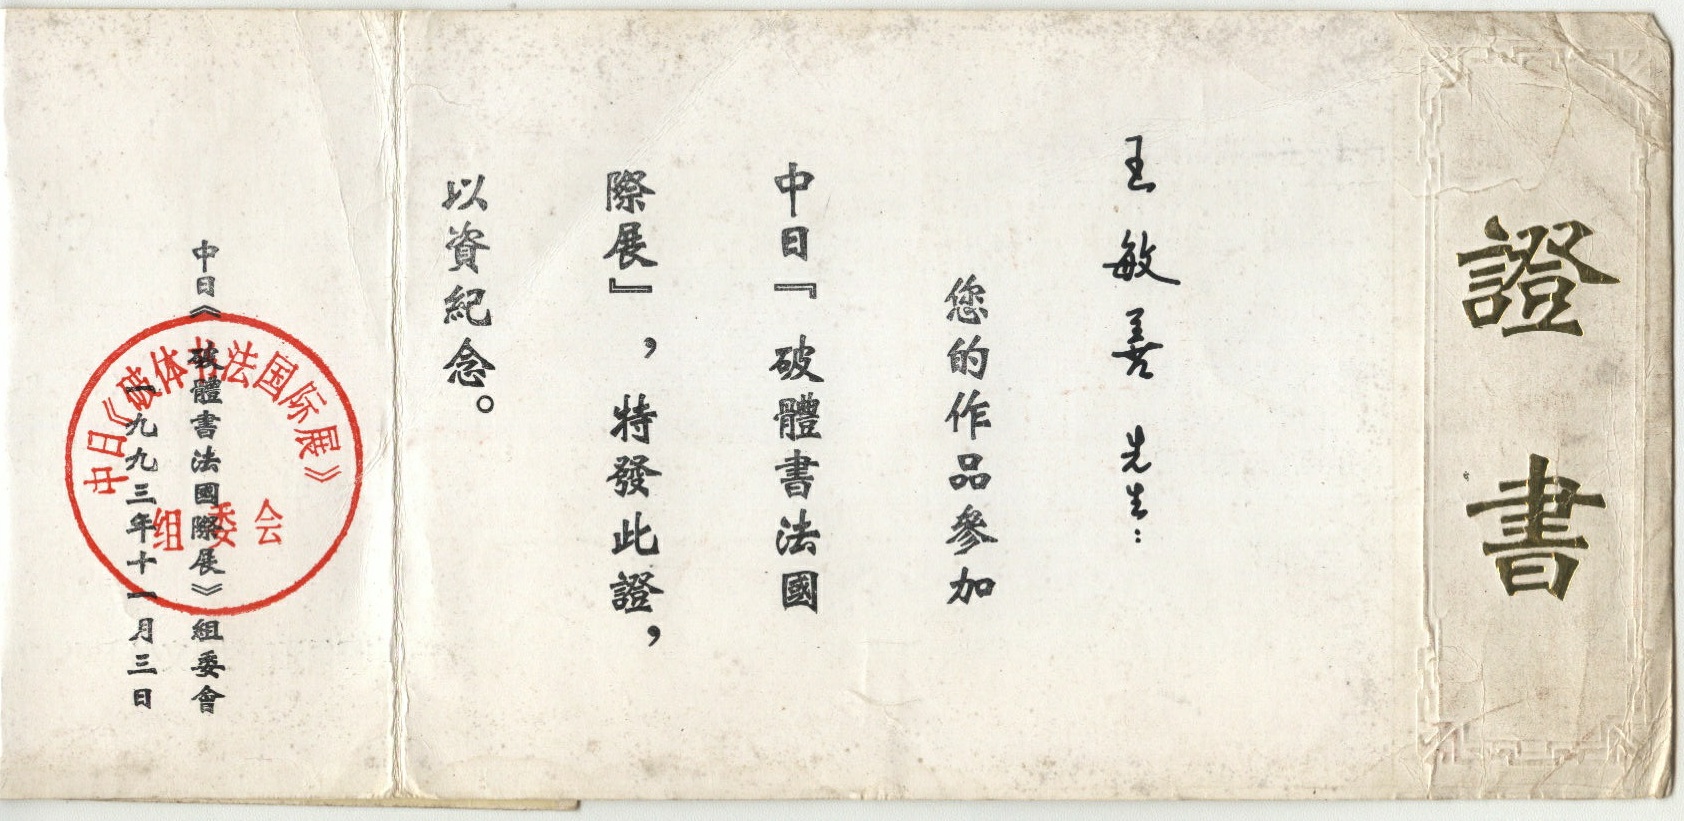 證書
王敏善先生：
您的作品參加
中日『破體書法國
際展』，特發此證，
以資紀念。
中日《破體書法國際展》組委會
一九九三年十一月三日
中日《破体书法国际展》
组委会